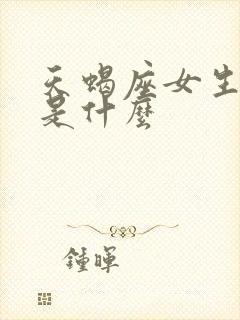 天蝎座女生
是什麼
鍾暉